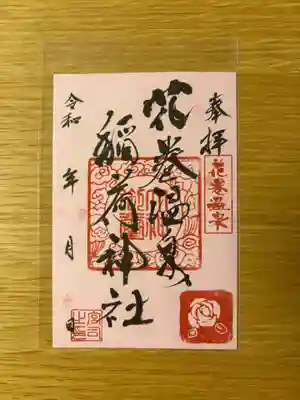 奉拝
花巻温泉
花巻温泉
稲荷神社
令和 年 月 日